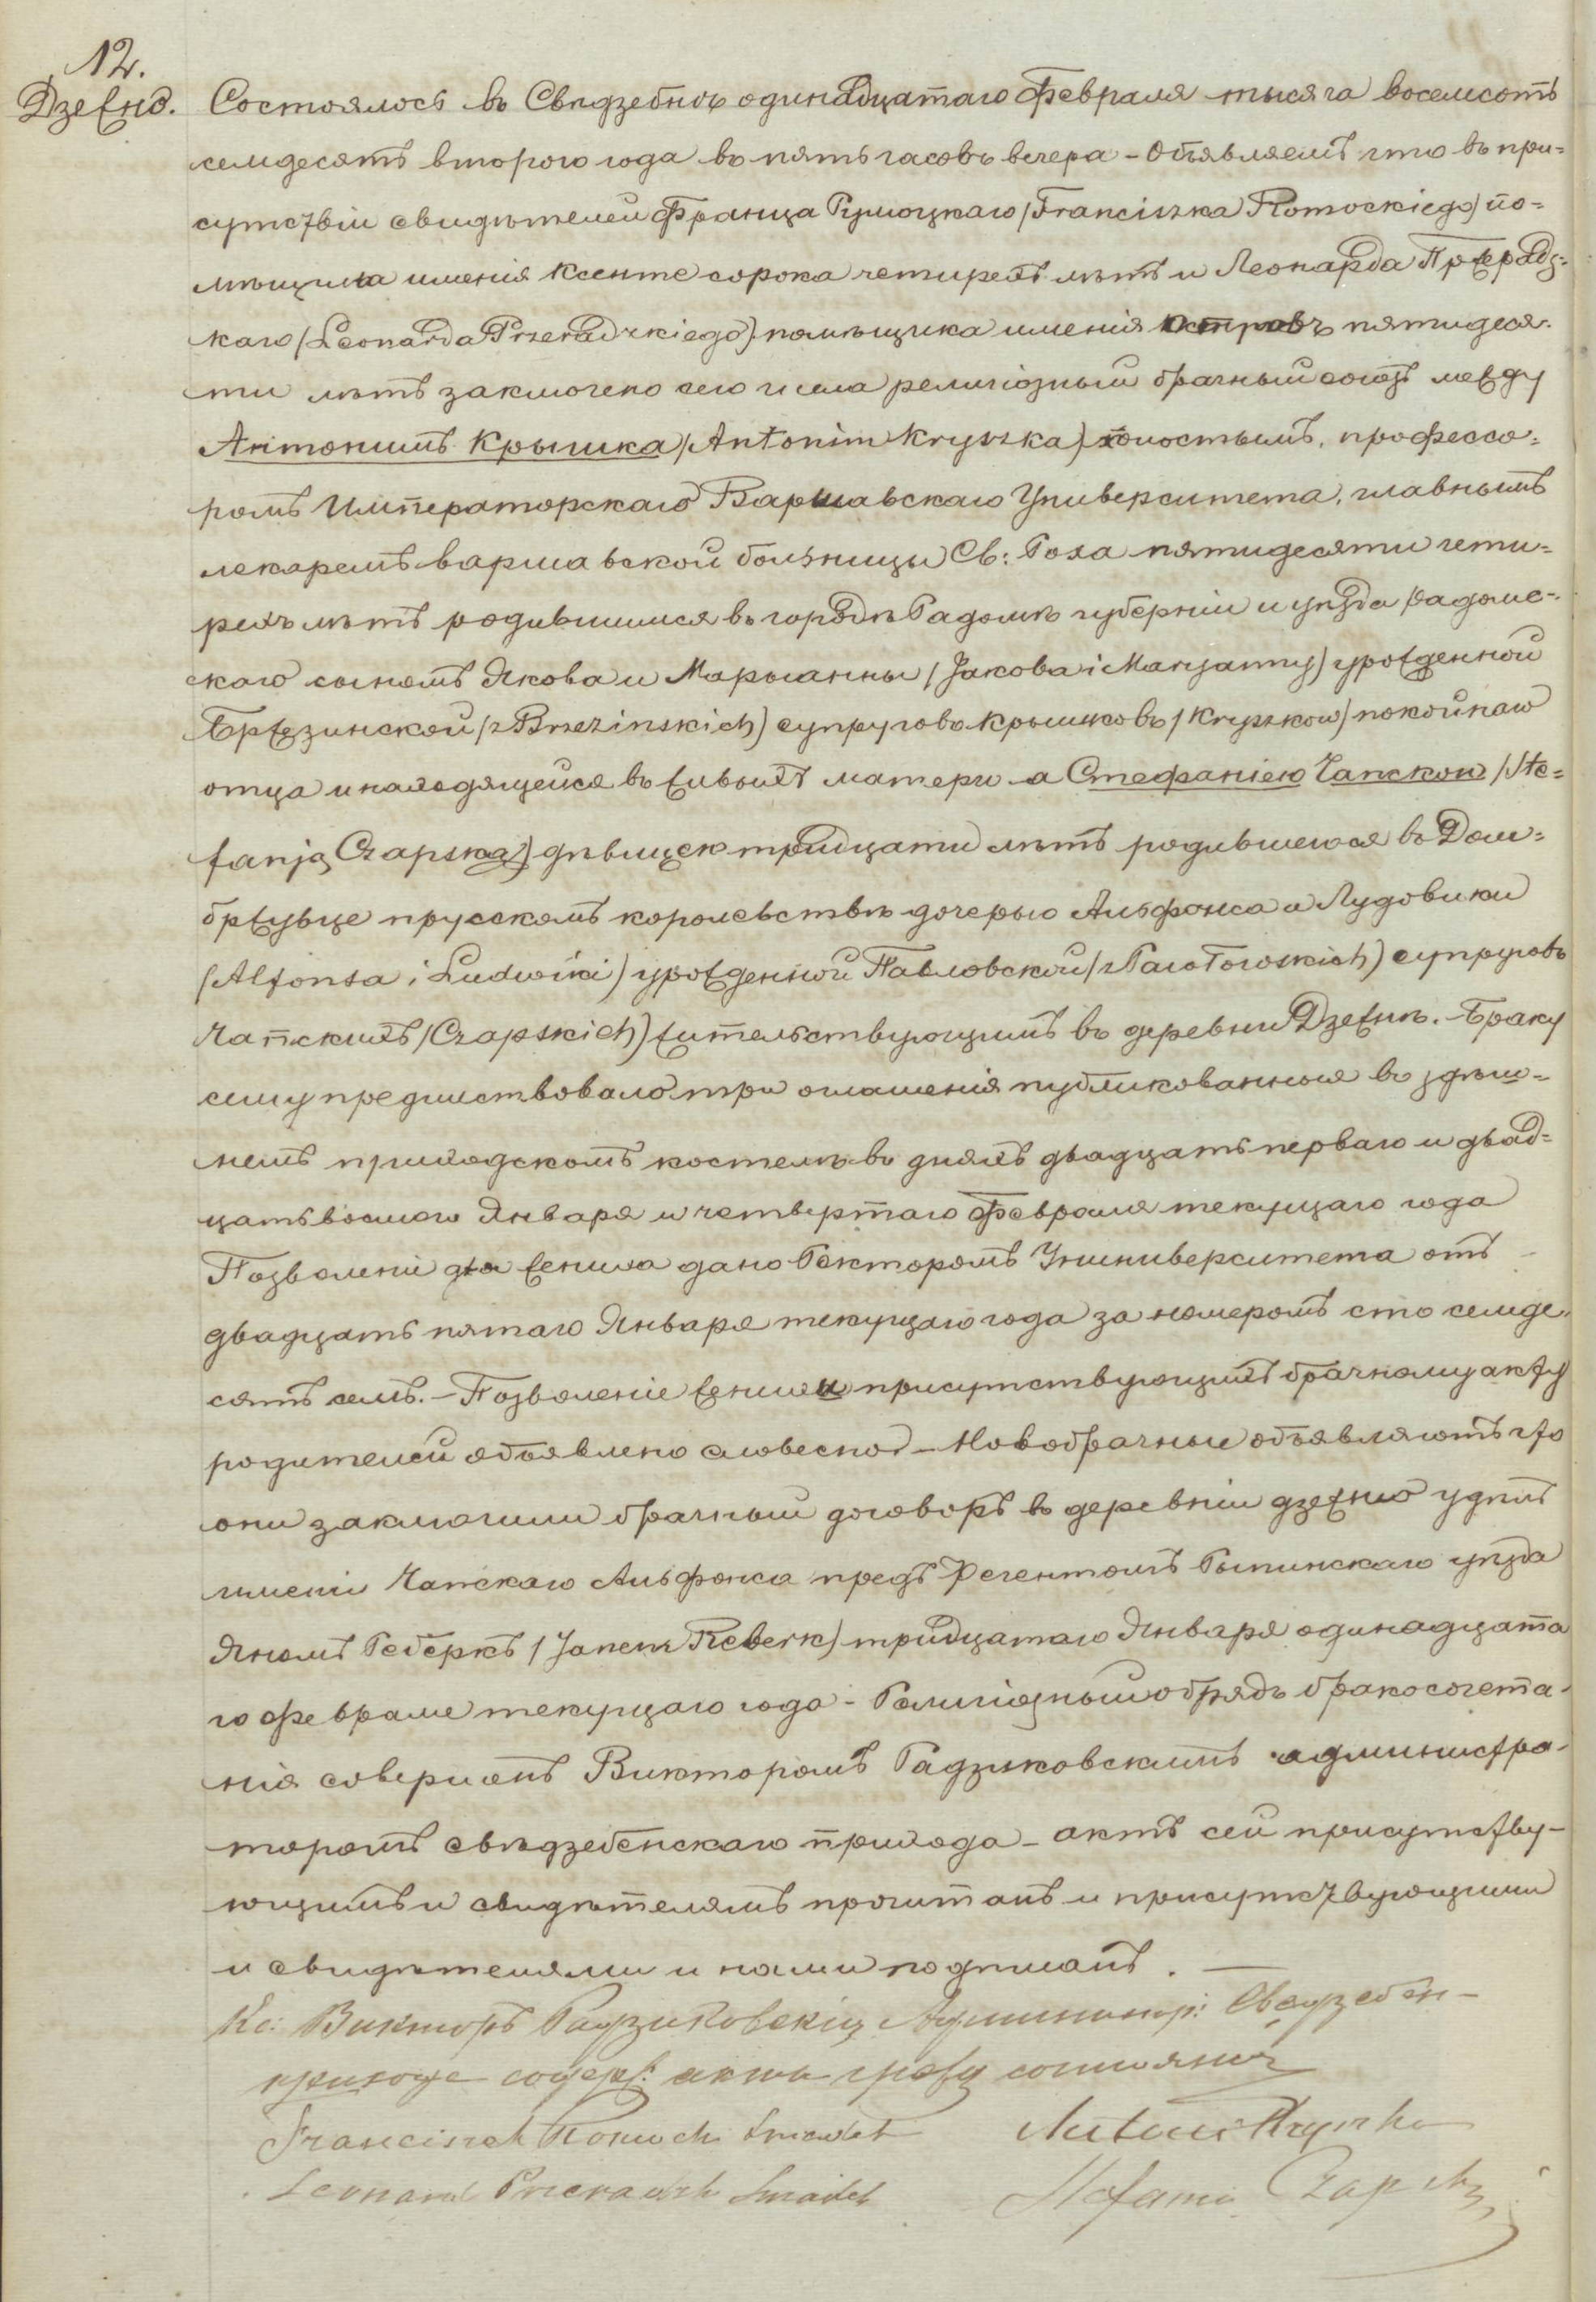 12.
Дзежно.
Состоялось въ Свѣдзебнѣ одинадцатаго Февраля тысяча восемсотъ
семдесятъ второго года въ пять часовъ вечера - Объявляемъ что въ при=
сутствіи свидѣтелей Франца Румоцкаго /Franciszka Romockiego/ по=
мѣщика имѣнія Ксенте сорока четирехъ лѣтъ и Леонарда Пржерадз=
каго /Leonarda Przeradzkiego/ помѣщика имѣнія Островъ пятидеся=
ти лѣтъ заключено сего числа религіозный брачный союзъ между
Антонимъ Крышка /Antonim Kryszka/ холостымъ, профессо=
ромъ Императорскаго Варшавскаго Университета, главнымъ
лекаремъ варшавской больницы Св: Роха пятидесяти чети=
рехъ лѣтъ родившимся въ городѣ Радомѣ губерніи и уѣзда радом=
скаго сыномъ Якова и Марыанны /Jakoba i Maryanny/ урожденной
Бржезинской /z Brzezinskich/ супруговъ Крышковъ /Kryszkow/ покойнаго
отца и находящейся въ живыхъ матери - а Стефаніею Чапскою /Ste=
fanją Czapską/ дѣвицею тридцати лѣтъ родившеюся въ Дом=
бржувце прусскомъ королевствѣ дочерью Альфонса и Лудовики
/Alfonsa i Ludwiki/ урожденной Павловской /z Pawłowskich/ супруговъ
Чапскихъ /Czapskich/ жительствующимъ въ деревни Дзежнѣ. - Браку
сему предшествовало три оглашенія публикованныя въ здѣш=
немъ приходскомъ костелѣ въ дняхъ двадцать перваго и двад=
цать восмого Января и четвертаго Февраля текущаго года
Позволеніи для жениха дано Ректоромъ Униниверситета отъ
двадцать пятаго Января текущаго года за номеромъ сто семде=
сятъ семъ. - Позволеніе женихи присутствующихъ брачному акту
родителей объявлено словесно - Новобрачные объявляютъ что
они заключили брачный договоръ въ деревніи дзежно удѣлъ
имѣни Чапскаго Альфонса предъ Регентомъ Рыпинскаго уѣзда
Яномъ Реберкъ /Janem Reberk/ тридцатаго Января одинадцата
го февраля текущаго года - Религіозный обрядъ бракосочета=
нія совершонъ Викторомъ Радзиковскимъ администра-
торомъ свѣдзебенскаго прихода - актъ сей присутству-
ющимъ и свидѣтелямъ прочитанъ и присутствующими
и свидѣтелями и нами подписанъ. —
Кс: Викторъ Радзиковскій Администр: Свѣдзебен-
прихода содерж: акты гражд состоянія
Franciszek Romocki świadek Antoni Kryszka
Leonard Przeradzki świadek Stefania Czapska